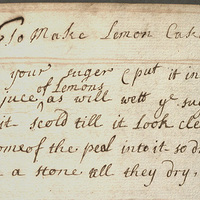 To Make Lemon Cak
your suger (put it in
of Lemons
juce ^ as will wett ye su
it scold till it Look cle
ome of the peel into it so d
n a stone till they dry,